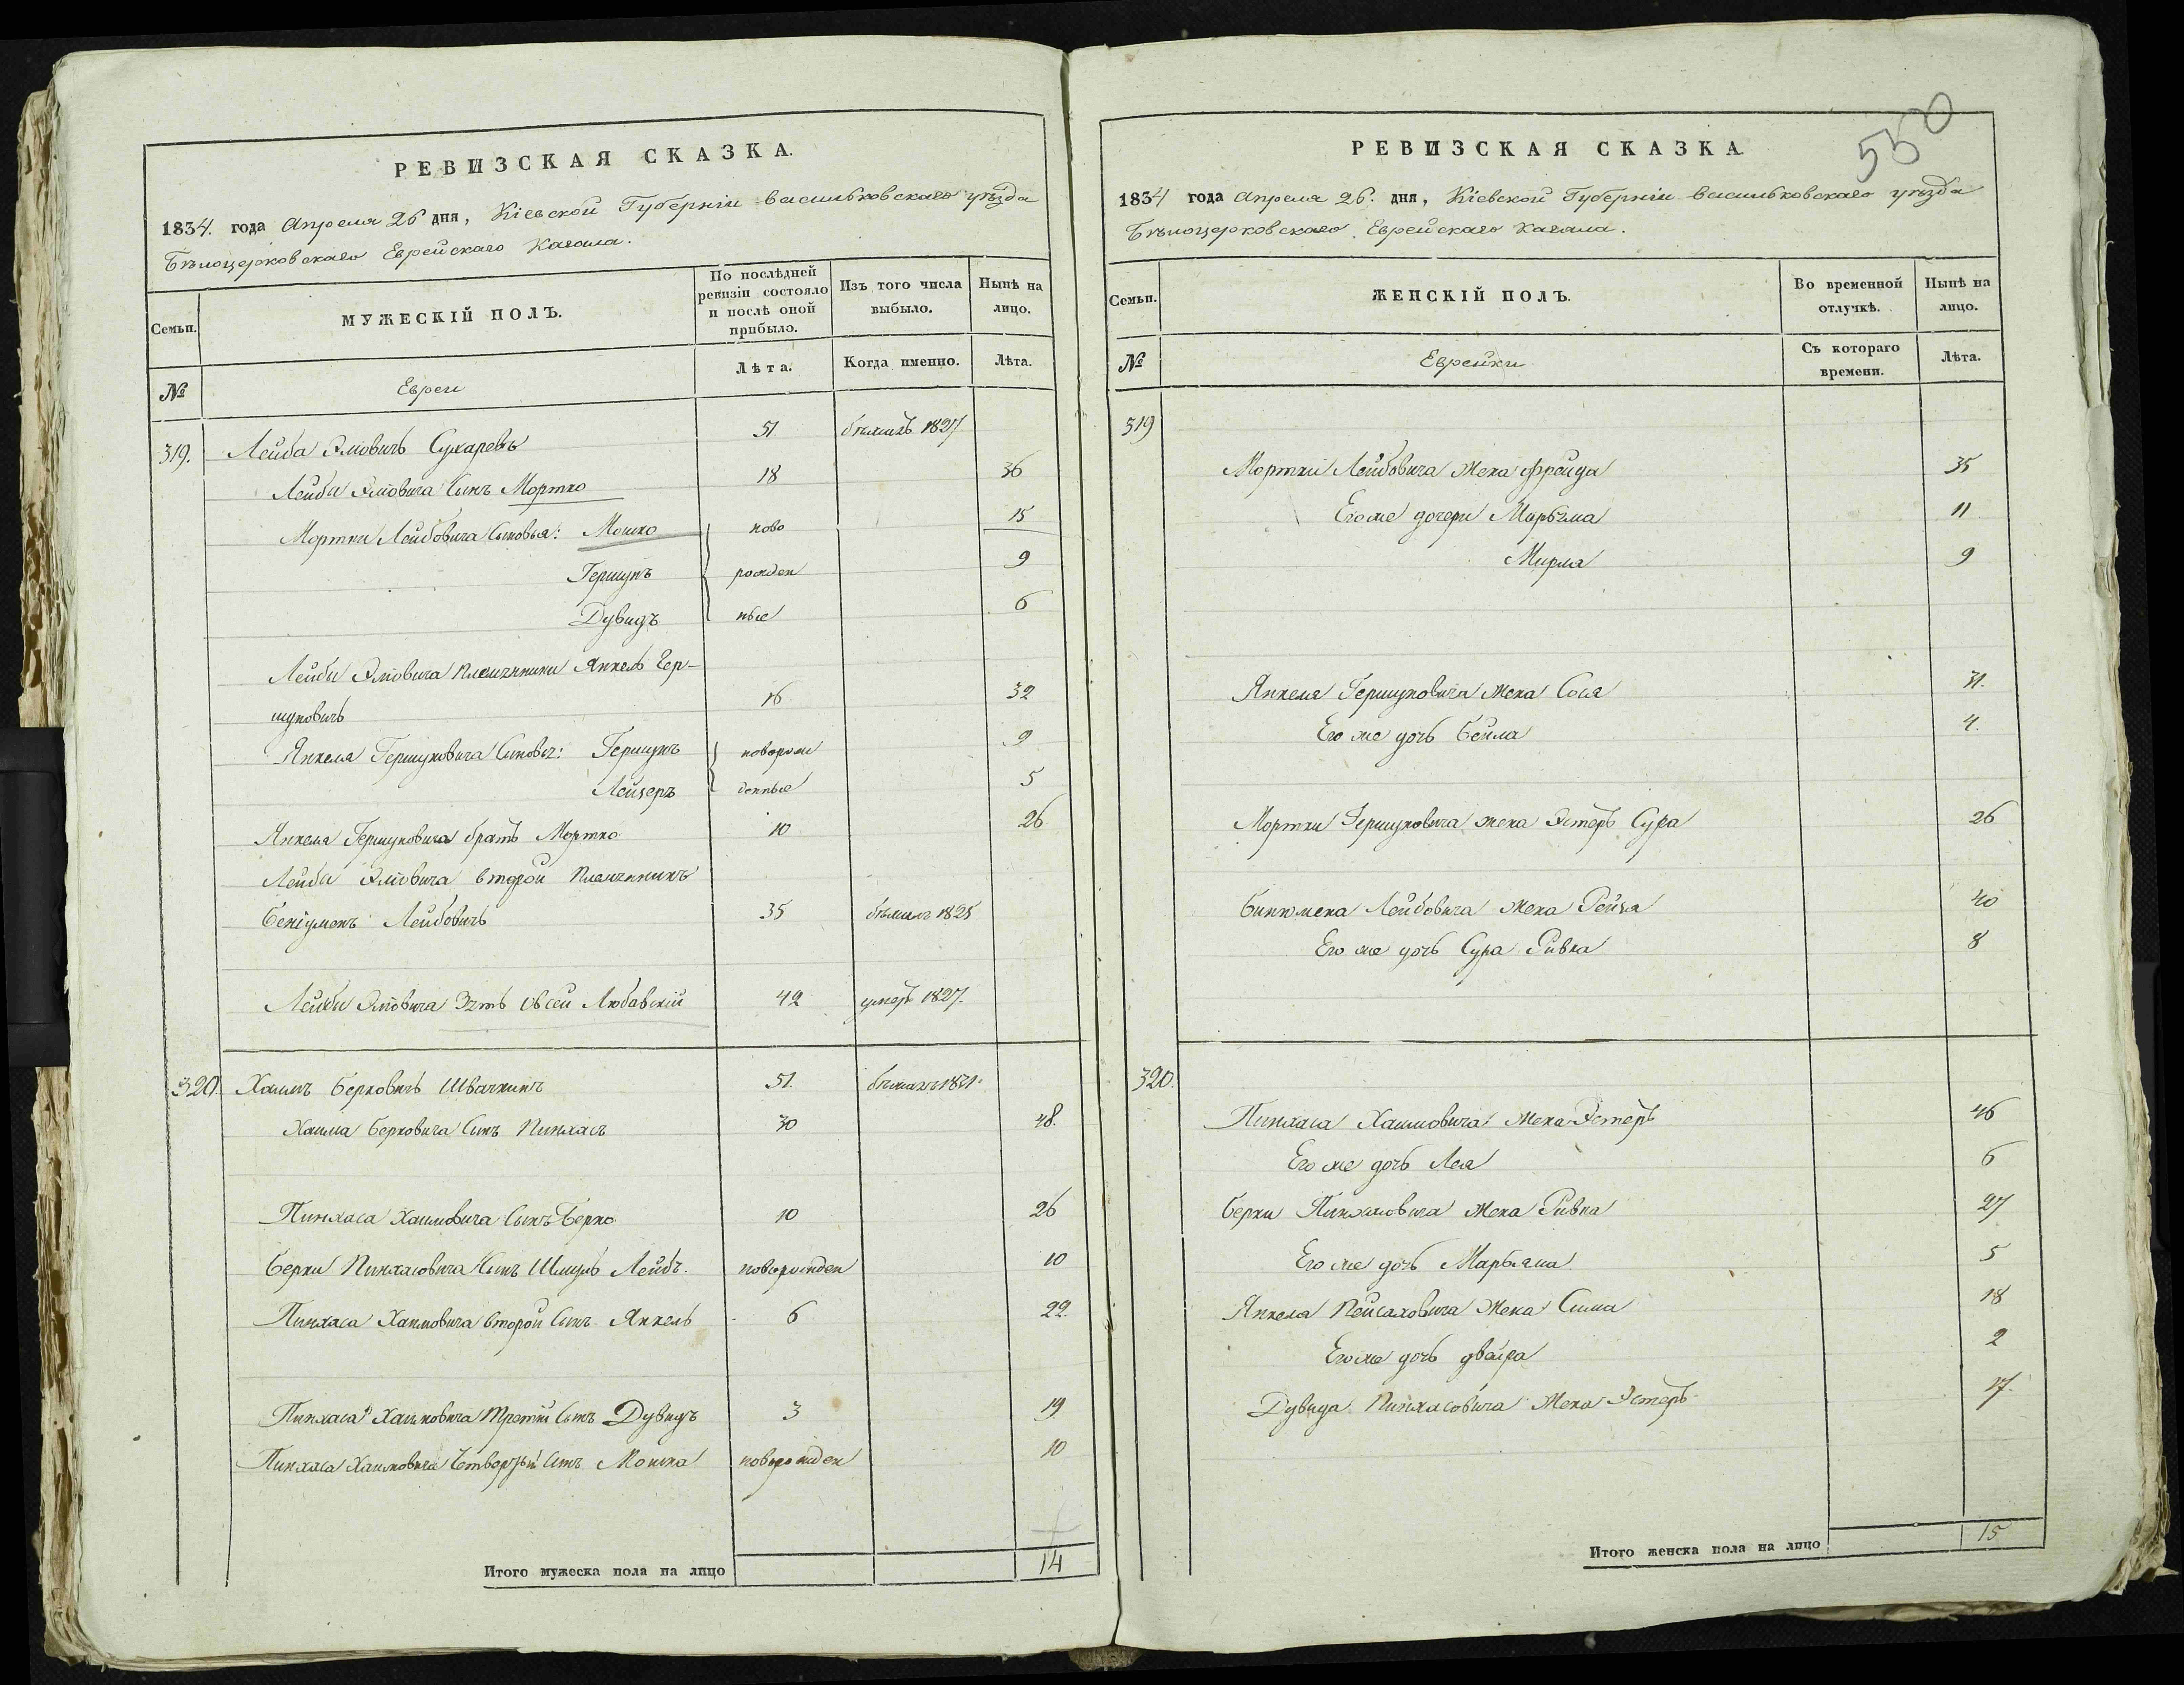 РЕВИЗСКАЯ СКАЗКА.
1834. года Апреля 26 дня, Кіевской Губерніи васильковскаго уѣзда
Бѣлоцерковскаго Еврейскаго Кагала.
Семьи.
МУЖЕСКІЙ ПОЛЪ.
По послѣдней ревизіи состояло и послѣ оной прибыло.
Изъ того числа выбыло.
Нынѣ на лицо.
№
Евреи
Лѣта.
Когда именно.
Лѣта.
319. Лейба Эліовичъ Сухаревъ 51. бѣжалъ 1827
Лейбы Эліовича Сынъ Мортко 18 36
Мортки Лейбовича Сыновья: Мошко ново 15
Гершунъ рожден 9
Дувидъ ные 6
Лейбы Эліовича племянники Янкель Гер-
шуновичъ 16 32
Янкеля Гершуновича Сыновья: Гершунъ новорож 9
Лейзеръ денные 5
Янкеля Гершуновича братъ Мортко 10 26
Лейбы Эліовича второй племянникъ
Беніуменъ Лейбовичъ 35 бѣжалъ 1825
Лейбы Эліовича Зять Овсей Любавскій 42 умеръ 1827.
320. Хаимъ Берковичъ 51. бѣжалъ 1831.
Хаима Берковича Сынъ Пинхасъ 30 48.
Пинхаса Хаимовича Сынъ Берко 10 26
Берки Пинхасовича Сынъ Шмуль Лейбъ. новорожден 10
Пинхаса Хаимовича второй Сынъ Янкель 6 22.
Пинхаса Хаимовича третій Сынъ Дувидъ 3 19
Пинхаса Хаимовича Четвертый Сынъ Мошка новорожден 10
Итого мужеска пола на лицо 14
550
РЕВИЗСКАЯ СКАЗКА
1834 года Апреля 26. дня, Кіевской Губерніи васильковскаго уѣзда
Бѣлоцерковскаго Еврейскаго Кагала.
Семьи.
ЖЕНСКІЙ ПОЛЪ.
Во временной отлучкѣ.
Нынѣ на лицо.
№
Еврейки
Съ котораго времени.
Лѣта.
319
Мортки Лейбовича Жена Фрейда 35
Его же дочери Марьяма 11
Мирля 9
Янкеля Гершуновича Жена Сося 31.
Его же дочь Бейла 4.
Мортки Гершуновича жена Эстеръ Сура 26
Бинюмена Лейбовича Жена Рейзя 40
Его же дочь Сура Ривка 8
320.
Пинхаса Хаимовича Жена Эстеръ 46
Его же дочь Лея 6
Берки Пинхасовича Жена Ривка 27
Его же дочь Марьяма 5
Янкеля Пейсаховича Жена Сима 18
Его же дочь двойра 2
Дувида Пинхасовича Жена Эстеръ 17.
Итого женска пола на лицо 15